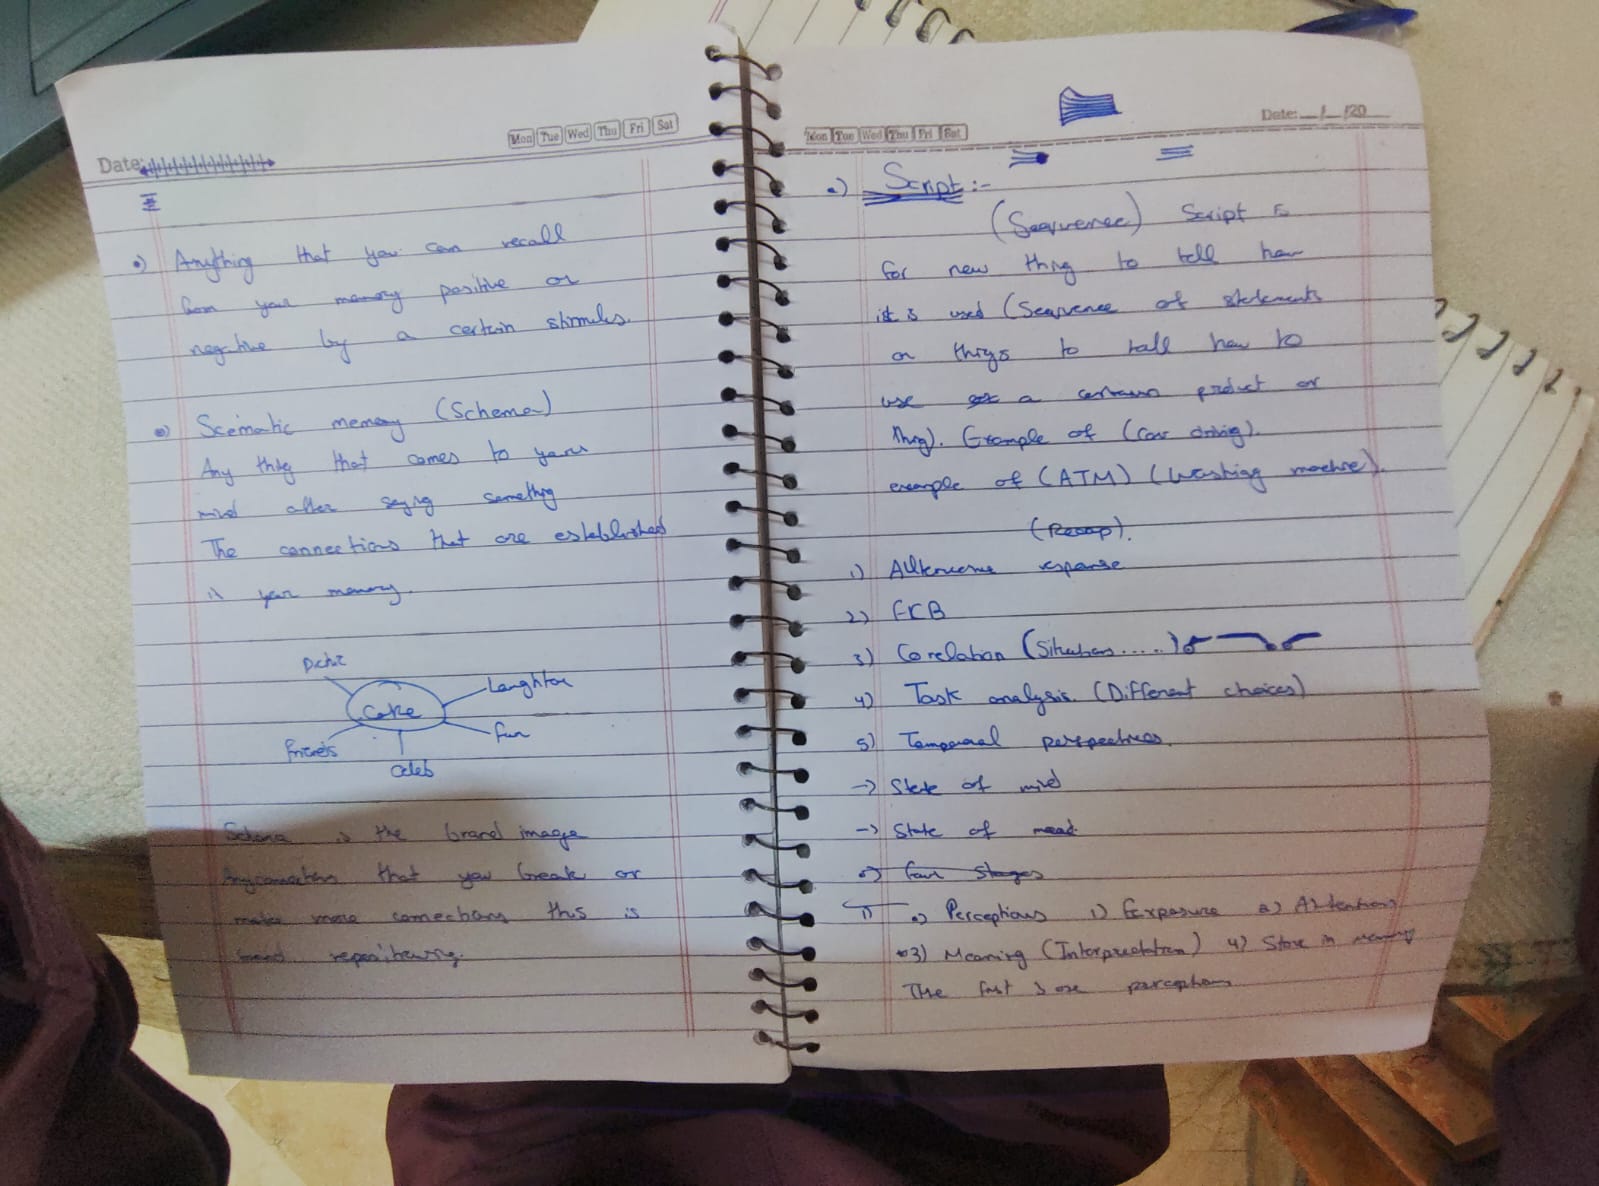 Mon Tue Wed Thu Fri Sat
Date:
Anything that you can recall
from your memory positive or
negative by a certain stimulus.
Scematic memory (Schema)
Any thing that comes to your
mind after saying something
The connections that are established
in your memory.
Laughter
Cake
Fun
Friends
Celeb
Schema is the brand image
Any connection that you break or
make more connections this is
brand
Mon Tue Wed Thu Fri Sat
Date: __/__/20__
Script :-
(Sequence) Script is
for new thing to tell how
it is used (Sequence of statements
or things to tell how to
use a certain product or
thing). Example of (car driving).
example of (ATM) (Washing machine).
(Recap).
1)
2) FCB
3) Corelation (Situations.....)
4) Task analysis. (Different choices)
5) Temporal perspectives.
→ State of mind
→ State of mood
Four Stages
Perceptions 1) Exposure 2) Attentions
3) Meaning (Interpretation) 4) Store in memory
The first 3 are perception